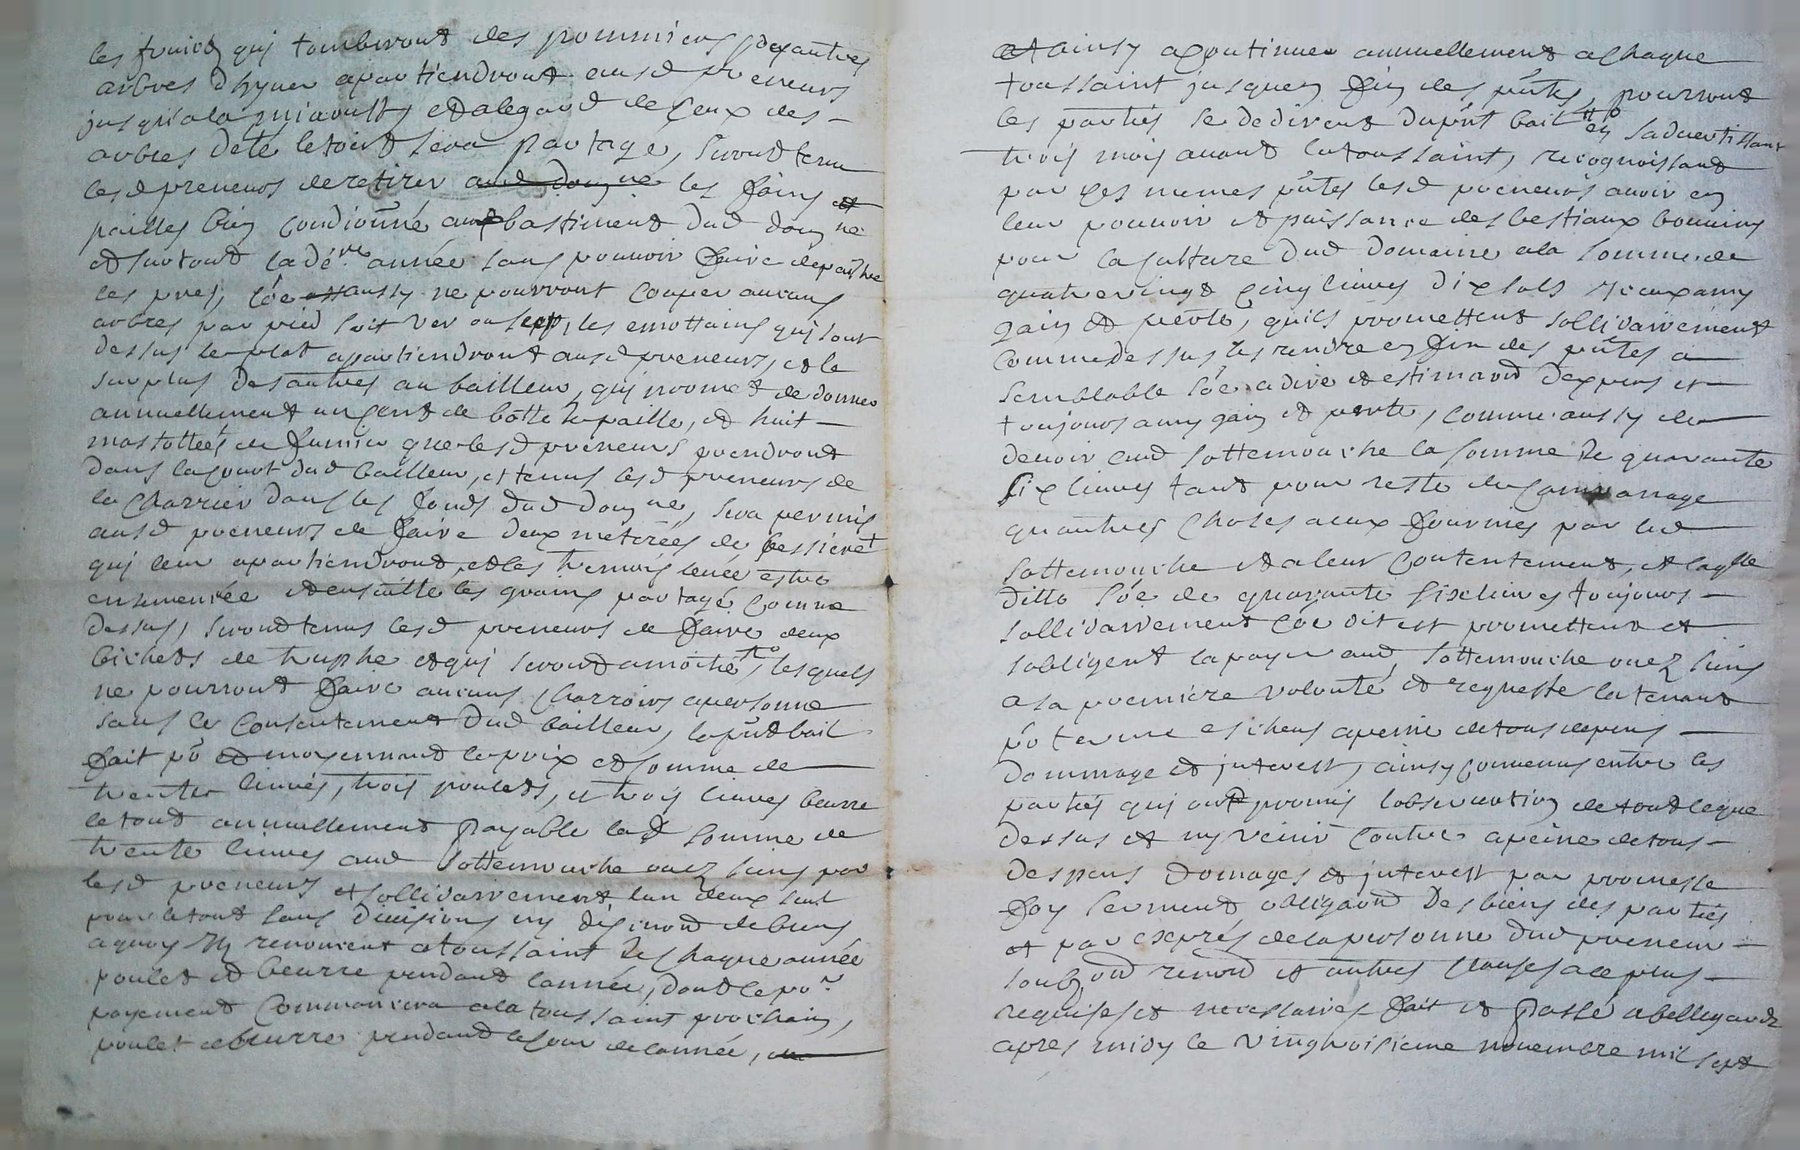 les fruicts qui tomberont des pommiers et autres
arbres dhyver apartiendront ausd preneurs
jusqu'a la miaoust, et alegard de ceux des
arbres dété le tout sera partagé, seront tenu
lesd preneurs de retirer aud domne les foins et
pailles bien condionné aux bastiment dud domne
et surtout la dére année sans pouvoir faire depaitre
les prés, cõe aussy ne pourront couper aucuns
arbres par pied soit ver ou secq, les emottains qui sont
dessus le plat apartiendront ausd preneurs, et le
surplus des autres au bailleur, qui promet de donner
annuellement un cent de botte de paille, et huit
de fumier que lesd preneurs prendront
dans la court dud bailleur, et tenus lesd preneurs de
le charrier dans les fonds dud domne, sera permis
ausd preneurs de faire deux meterées de
qui leur apartiendront, et les tremois leuée estre
ensemencée et ensuitte les grains partagé comme
dessus, seront tenus lesd preneurs de faire deux
bichets de truphe et qui seront amoitié, lesquels
ne pourront faire aucuns charrois a personne
sans le consentement dud bailleur, le pñt bail
fait põ et moyennant le prix et somme de
trente livres, trois poulets, et trois livres beurre
le tout annuellement payable lad somme de
trente livres aud Sottemouche ouez siens par
lesd preneurs et sollidairement lun deux seul
pour le tout sans divisions ny discution de biens
a quoy ils renoncent a toussaint de chaque année
poulet et beurre pendant lannée, dont le pr
payement commancera a la toussaint prochain,
poulet et beurre pendant le cour de lannée,
et ainsy a continuer annuellement a chaque
toussaint jusquen fin des pñtes, pourront
les parties se dedirent du pñt bail en sadvertissant
trois mois avant la toussaint, recognoissant
par ces memes pñtes lesd preneurs avoir en
leur pouvoir et puissance des bestiaux bouvins
pour la culture dud domaine a la somme de
quatre vingt cinq livres dix sols
gain et perte, quils promettent sollidairement
comme dessus les rendre en fin des pñtes a
semblable sõe a dire et estimaõn dexpers et
toujours a my gain et perte, comme aussy de
devoir aud Sottemouche la somme de quarante
six livres tant pour reste de
qu'autres choses a eux fournies par led
Sottemouche et a leur contentement, et laqlle
ditte sõe de quarante six livres toujours
sollidairement cõe dit est promettent et
sobligent la payer aud Sottemouche ouez siens
a sa première volonté et requeste la tenant
põ terme escheus a peine de tous depens
dommage et interest, ainsy convenus entre les
parties qui ont promis lobservation de tout ce que
dessus et ny venir contre a peine de tous
despens domages et interest par promesse
foy serment obligaõn des biens des parties
et par exprés de la personne dud preneur
soubzon renõn et autres clauses a ce plus
requises et necessaires fait et passé a bellegarde
apres midy le vingtroisieme novembre mil sept